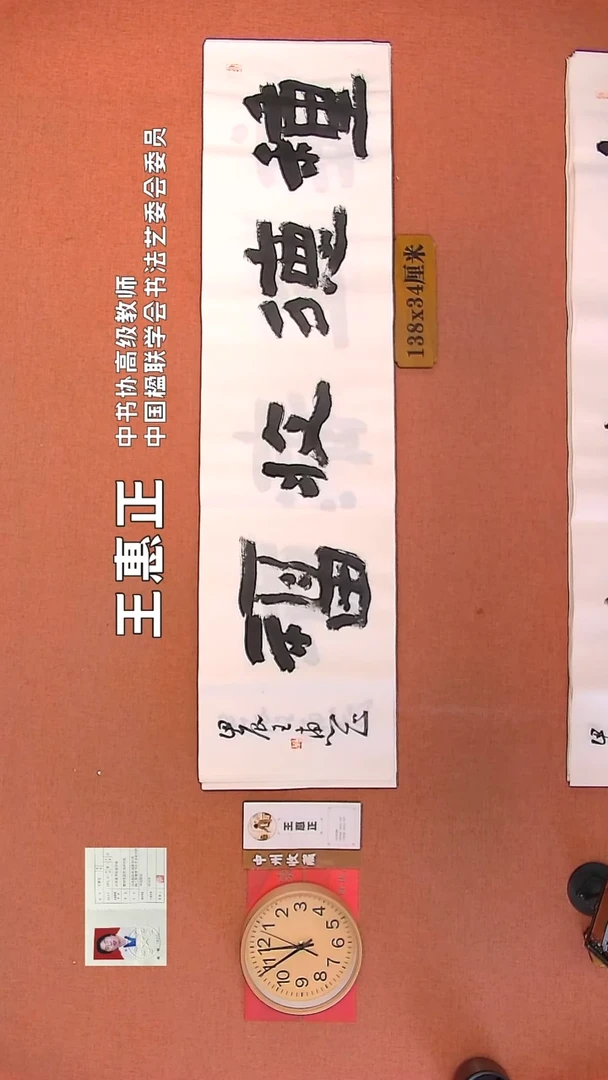 中书协高级教师
中国楹联学会书法艺委会委员
王惠正
種德收福
甲辰王惠正
138x34厘米
王惠正
中州收藏
12
1
2
3
4
5
6
7
8
9
10
11